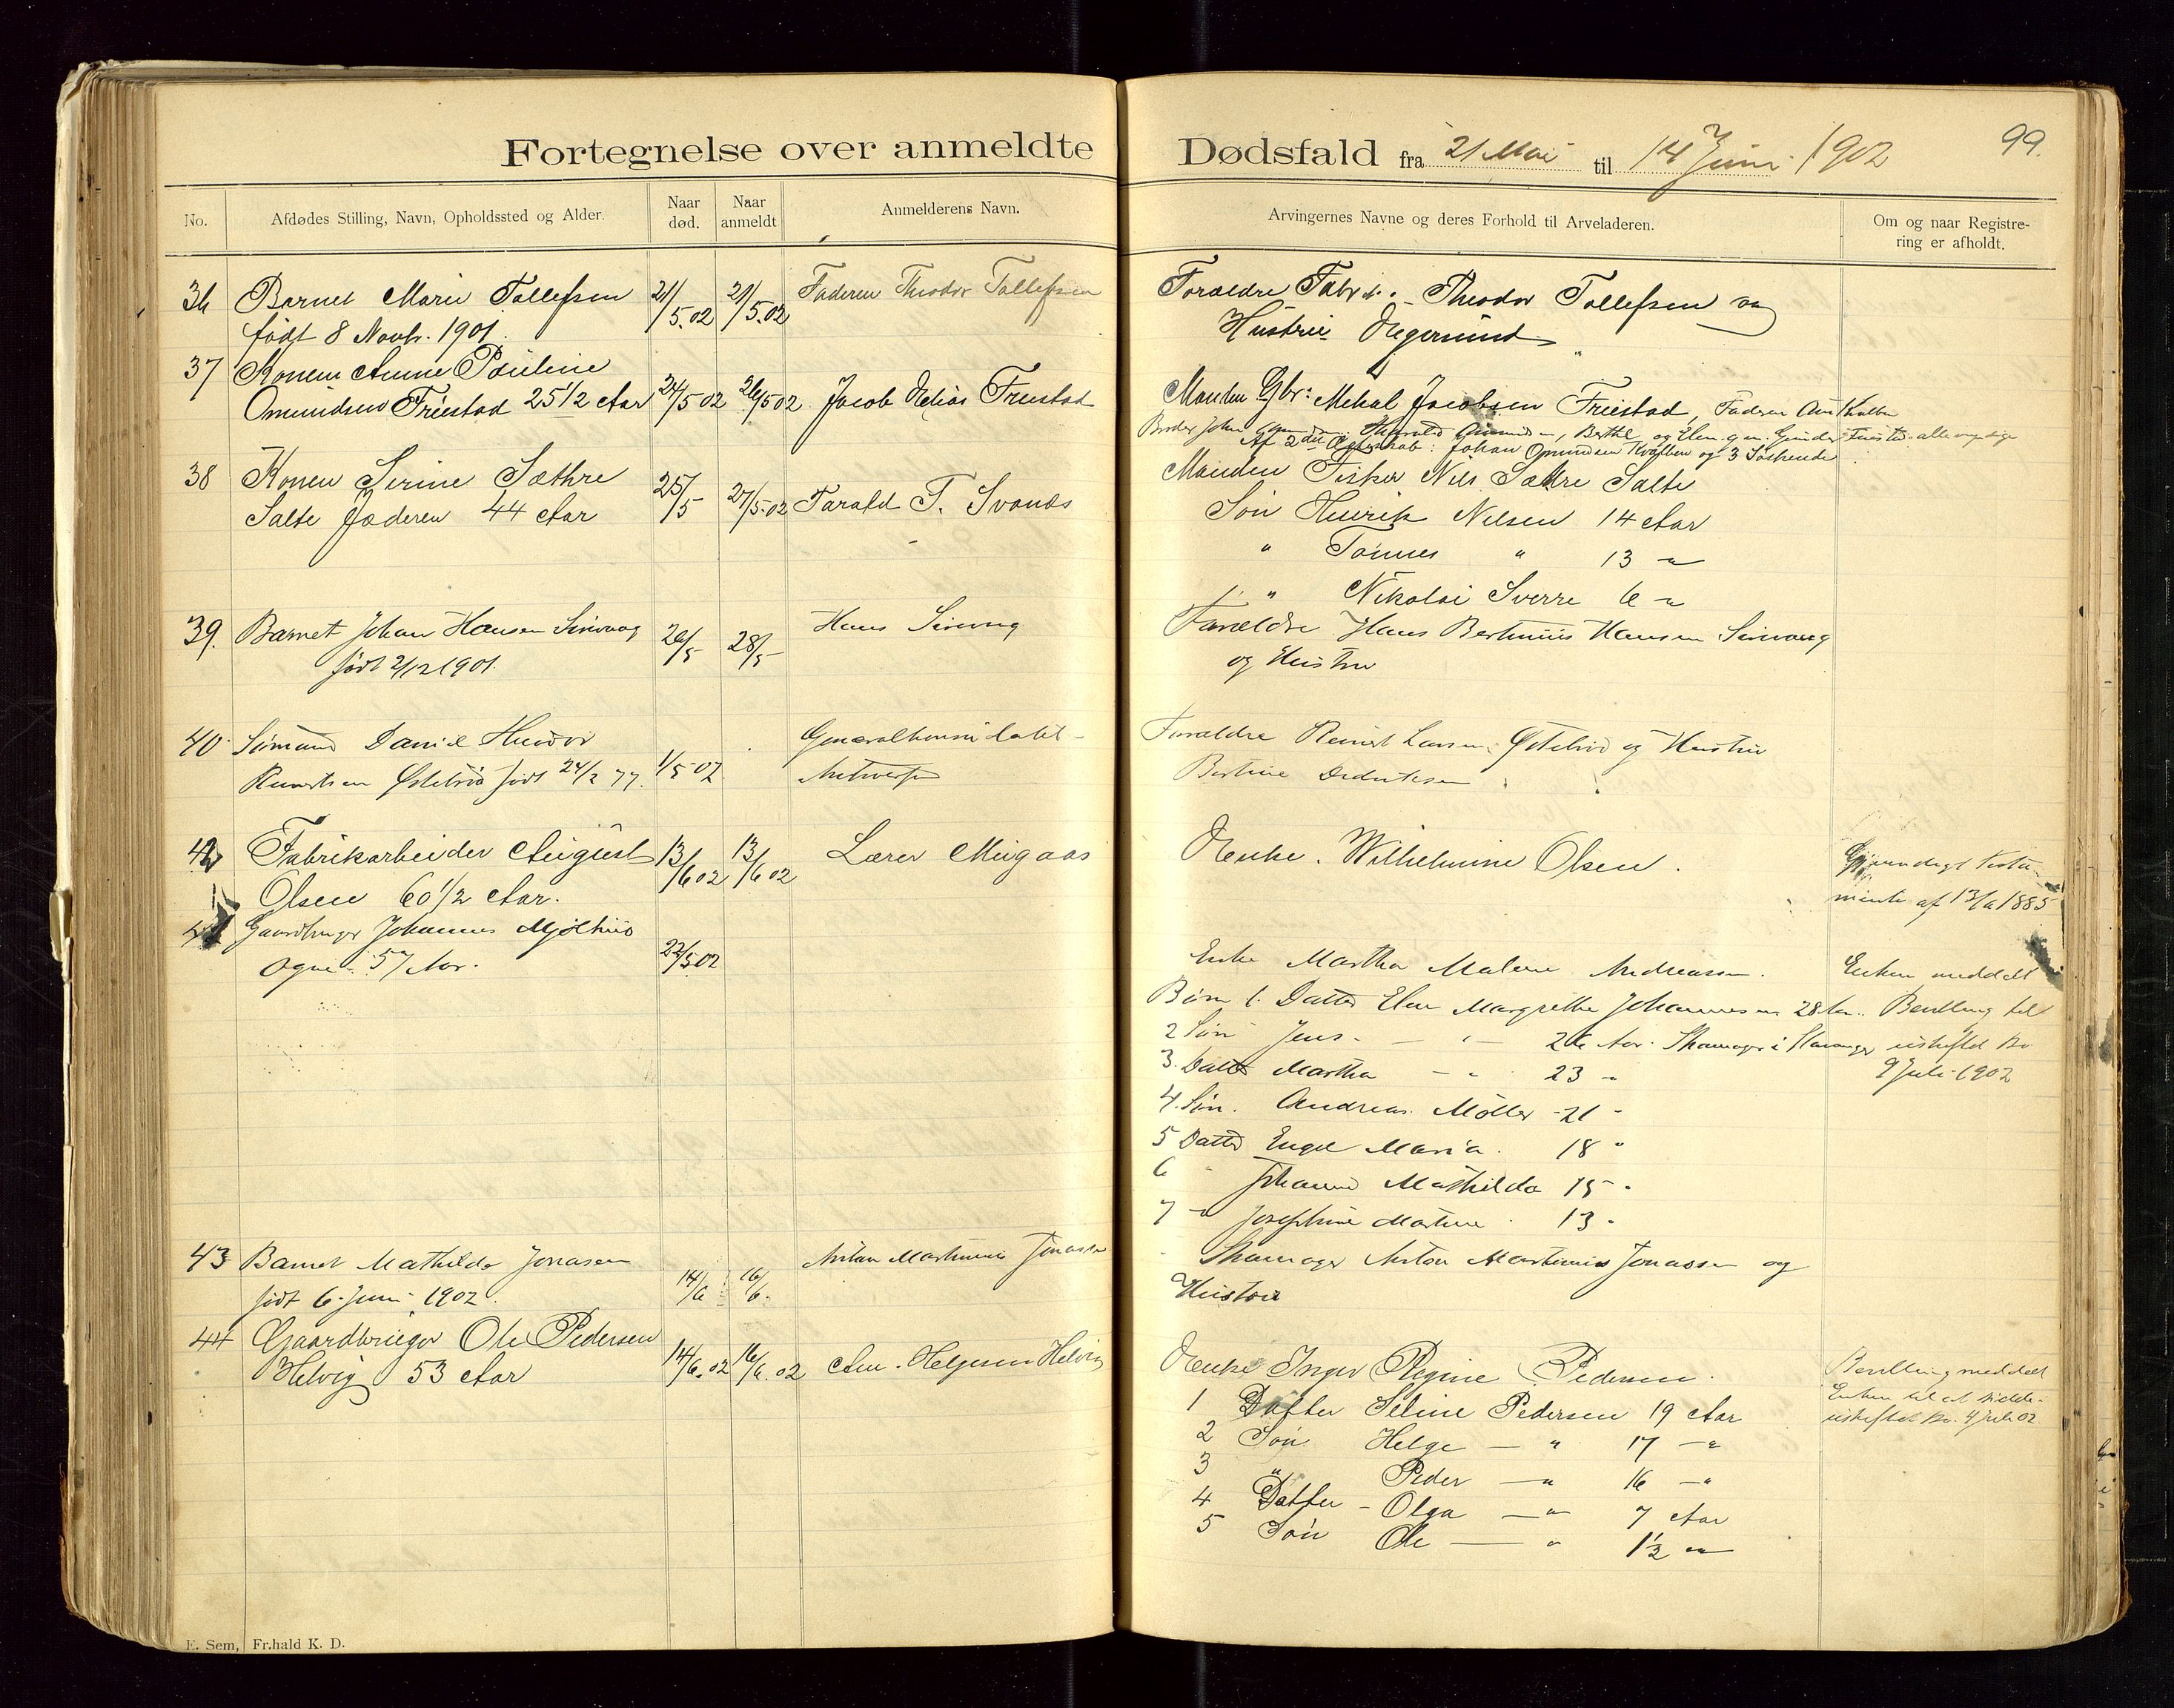 Fortegnelse over anmeldte Dødsfald fra 21 Mai til 14 Juni 1902
99.
No.
Afdødes Stilling, Navn, Opholdssted og Alder.
Naar død.
Naar anmeldt
Anmelderens Navn.
Arvingernes Navne og deres Forhold til Arveladeren.
Om og naar Registre-
ring er afholdt.
36 Barnet Marie Tollefsen 21/5.02 21/5.02 Faderen Theodor Tollefsen
født 8 Novb. 1901.
Forældre Theodor Tollefsen og
Hustru Egersund
37 Konen Anne Pauline
Omundsen Friestad 25 1/2 Aar 24/5 02 26/5 02 Jacob Friestad
Manden Gbr: Mikal Jacobsen Friestad, Faderen
Broder John Berthe og Elen
Af 2det Ægteskab: Johan Omundsen og 3 Søskende
38 Konen Serine Sæthre 25/5 27/5.02 Tarald T. Svanes
Salte Jæderen 44 Aar
Manden Fisker Nils Sæthre Salte
Søn Henrik Nilsen 14 Aar
" Tønnes " 13 "
" Nikolai Sverre 6 "
39. Barnet Johan Hansen Sirevaag 26/5 28/5 Hans Sirevaag
født 2/12 1901.
Forældre Hans Bertinius Hansen Sirevaag
og Hustru
40 Sømand Daniel 1/5 02 Generalkonsulatet
født 24/2 77. Antwerpen
Forældre Reinert Larsen og Hustru
Bertine
42 Fabrikarbeider August 13/6 02 13/6 02 Lærer Meigaas
Olsen 60 1/2 Aar.
Enke. Wilhelmine Olsen.
Gjensidigt Testa-
mente af 1885
Gaardbruger Johannes Mjølhus 22/5 02
Ogne 57 Aar.
Enke Martha Malene Andreassen.
Børn 1. Datter Elen Margrethe Johannessen 28 Aar.
2 Søn Jens - " - 26 Aar. Skomager i Stavanger
3. Datter Martha - " 23 "
4. Søn. Andreas Møller - 21 "
5 Datter Engel Maria. 18 "
6 " Johanne Mathilde 15 "
7 " Josephine Martine 13 "
Enken meddelt
Bevilling til
uskiftet Bo
9 Juli 1902
43 Barnet Mathilde Jonasen 14/6 16/6. Anton Martinius Jonassen
født 6 Juni 1902.
Skomager Anton Martinius Jonassen og
Hustru
44 Gaardbruger Ole Pedersen
Helvig 53 Aar 14/6.02 16/6.02 Helgesen Helvig
Enke Inger Regine Pedersen.
1 Datter Seline Pedersen 19 Aar
2 Søn Helge — " 17 — "
3 " Peder — " 16 — "
4 Datter - Olga — " 7 Aar
5 Søn Ole — " 1 1/2 "
Bevilling meddelt
Enken til at sidde i
uskiftet Bo. 4 Juli 02
E. Sem, Fr.hald K. D.